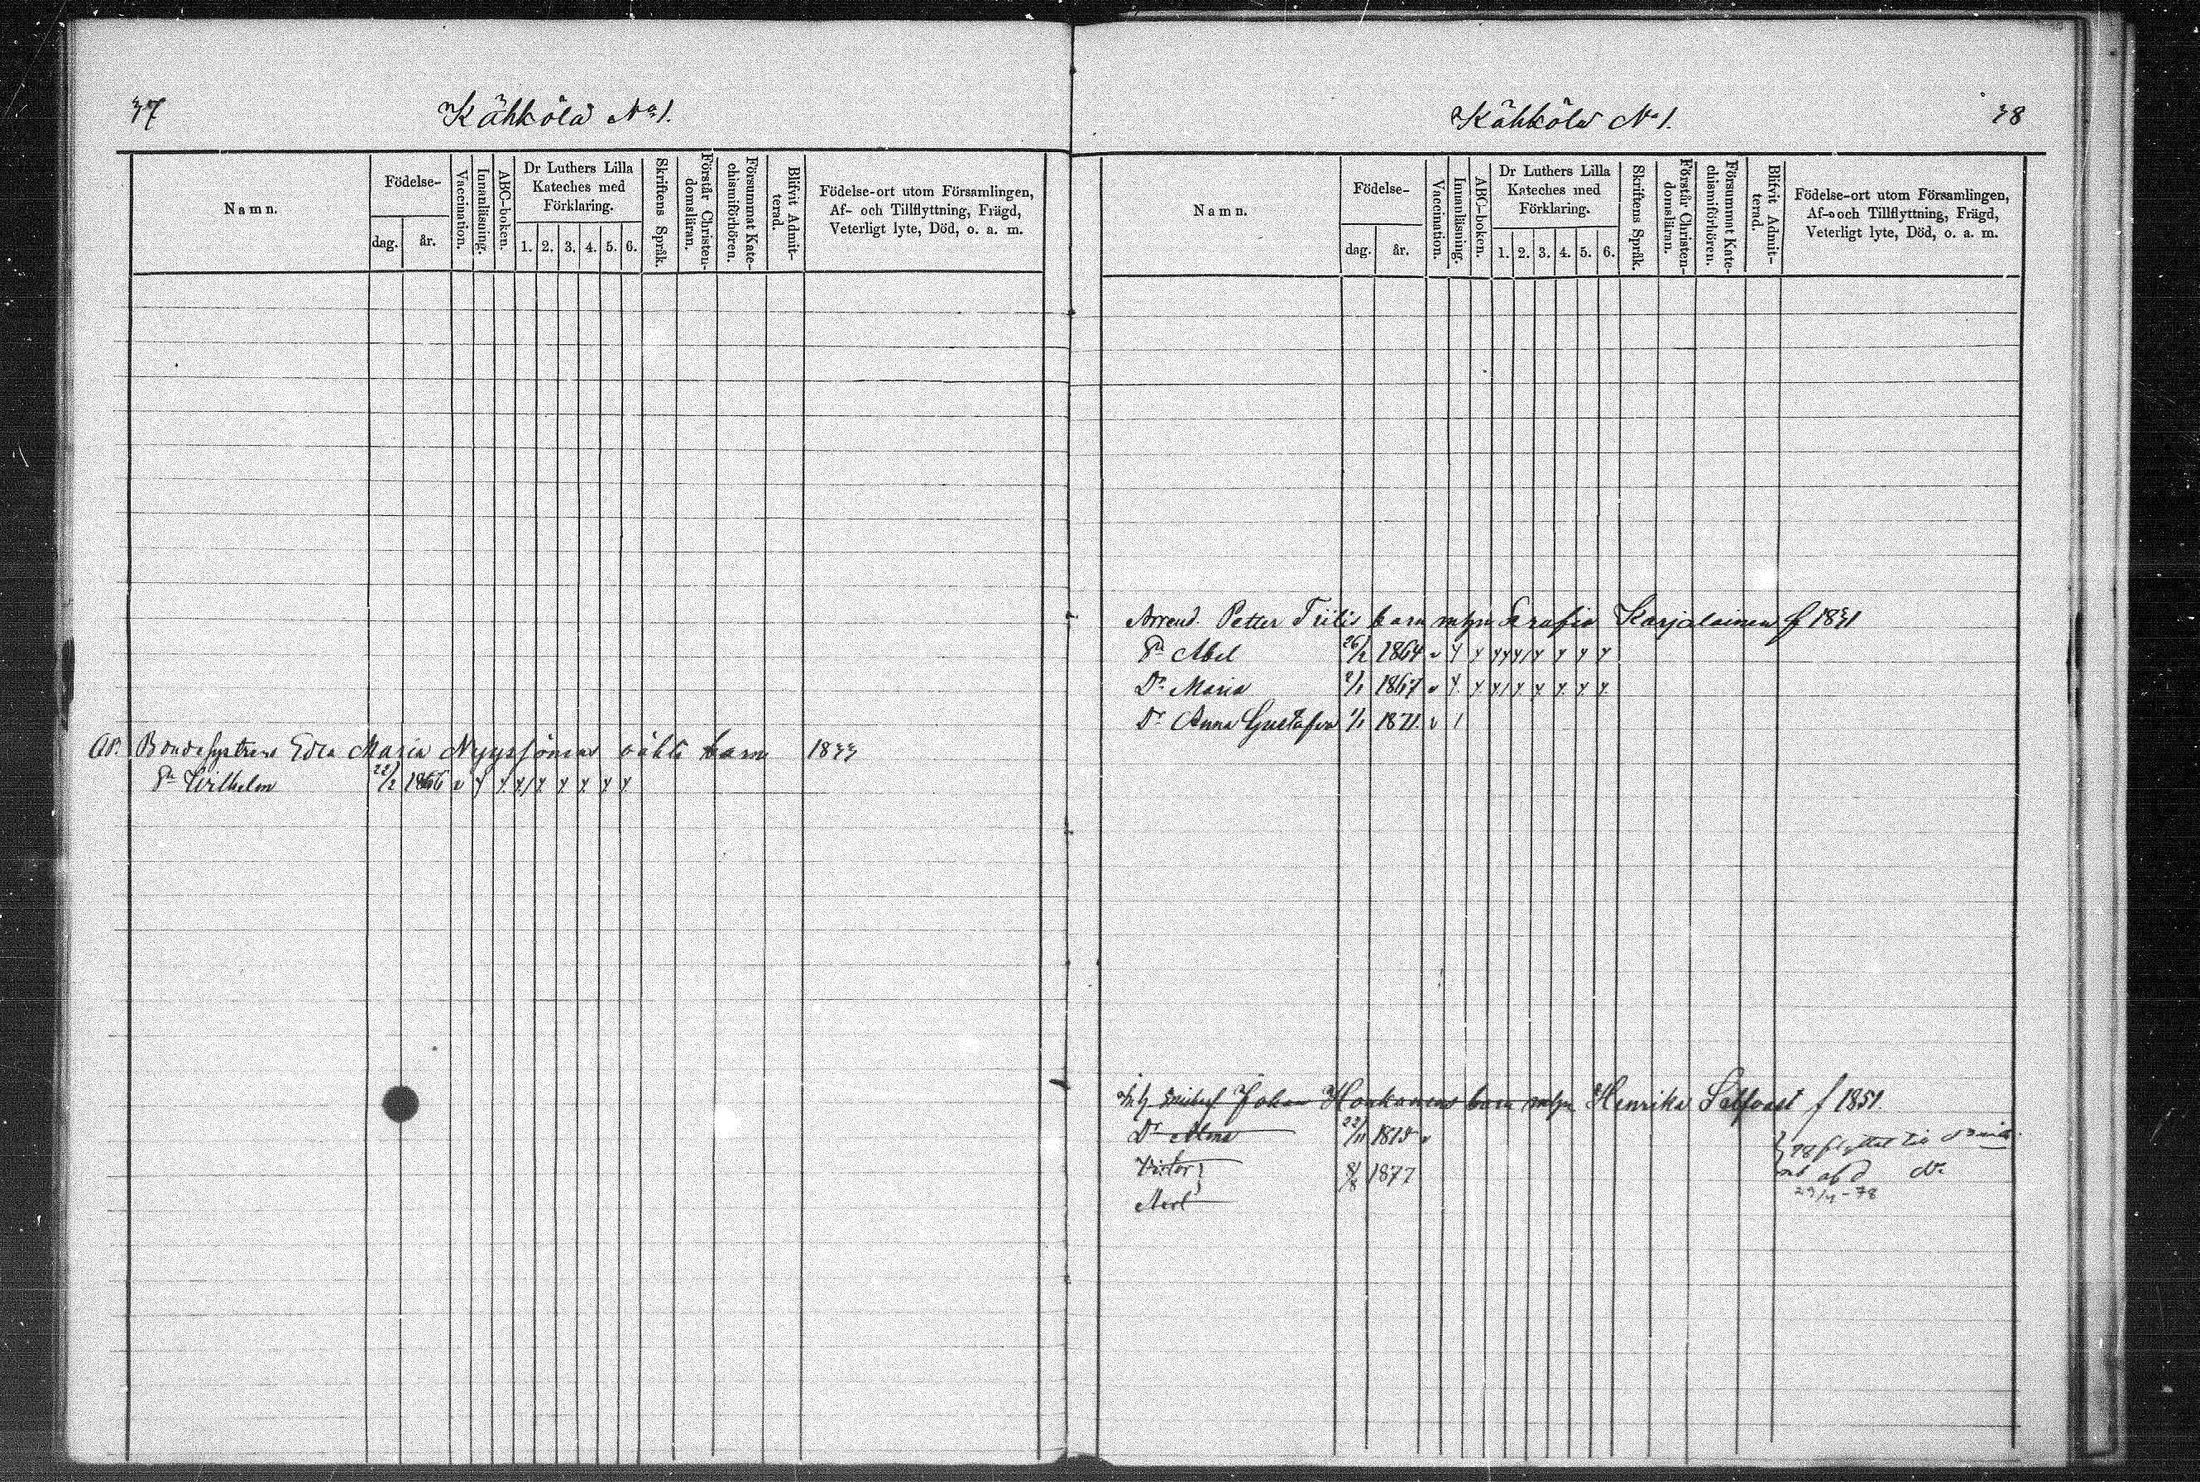 37
Kähkölä No 1.
Namn.
Födelse-
dag.
år.
Vaccination.
Innanläsning.
ABC-boken.
Dr Luthers Lilla
Kateches med
Förklaring.
1. 2. 3. 4. 5. 6.
Skriftens Språk.
Förstår Christen-
domsläran.
Försummat Kate-
chismiförhören.
Blifvit Admit-
terad.
Födelse-ort utom Församlingen,
Af- och Tillflyttning, Frägd,
Veterligt lyte, Död, o. a. m.
Edla Maria Nyyssönens oäkta barn 1833
Wilhelm 22/2 1866
Kähkölä No 1.
38
Namn.
Födelse-
dag.
år.
Vaccination.
Innanläsning.
ABC-boken.
Dr Luthers Lilla
Kateches med
Förklaring.
1. 2. 3. 4. 5. 6.
Skriftens Språk.
Förstår Christen-
domsläran.
Försummat Kate-
chismiförhören.
Blifvit Admit-
terad.
Födelse-ort utom Församlingen,
Af- och Tillflyttning, Frägd,
Veterligt lyte, Död, o. a. m.
Arrend. Petter Tiilis barn m Karjalainen f 1831
Abel 26/2 1864
Dr Maria 1867
Dr Anna Gustafva 1/1 1871
Johan Honkanens barn Henrika f 1851.
Dr Alma 22/11 1875
Victor 8/8 1877
Axel